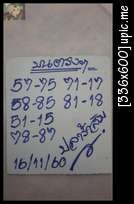 บนตรงๆ
57-75 71-17
58-85 81-18
51-15
78-87
16/11/60
[336x600] upic.me